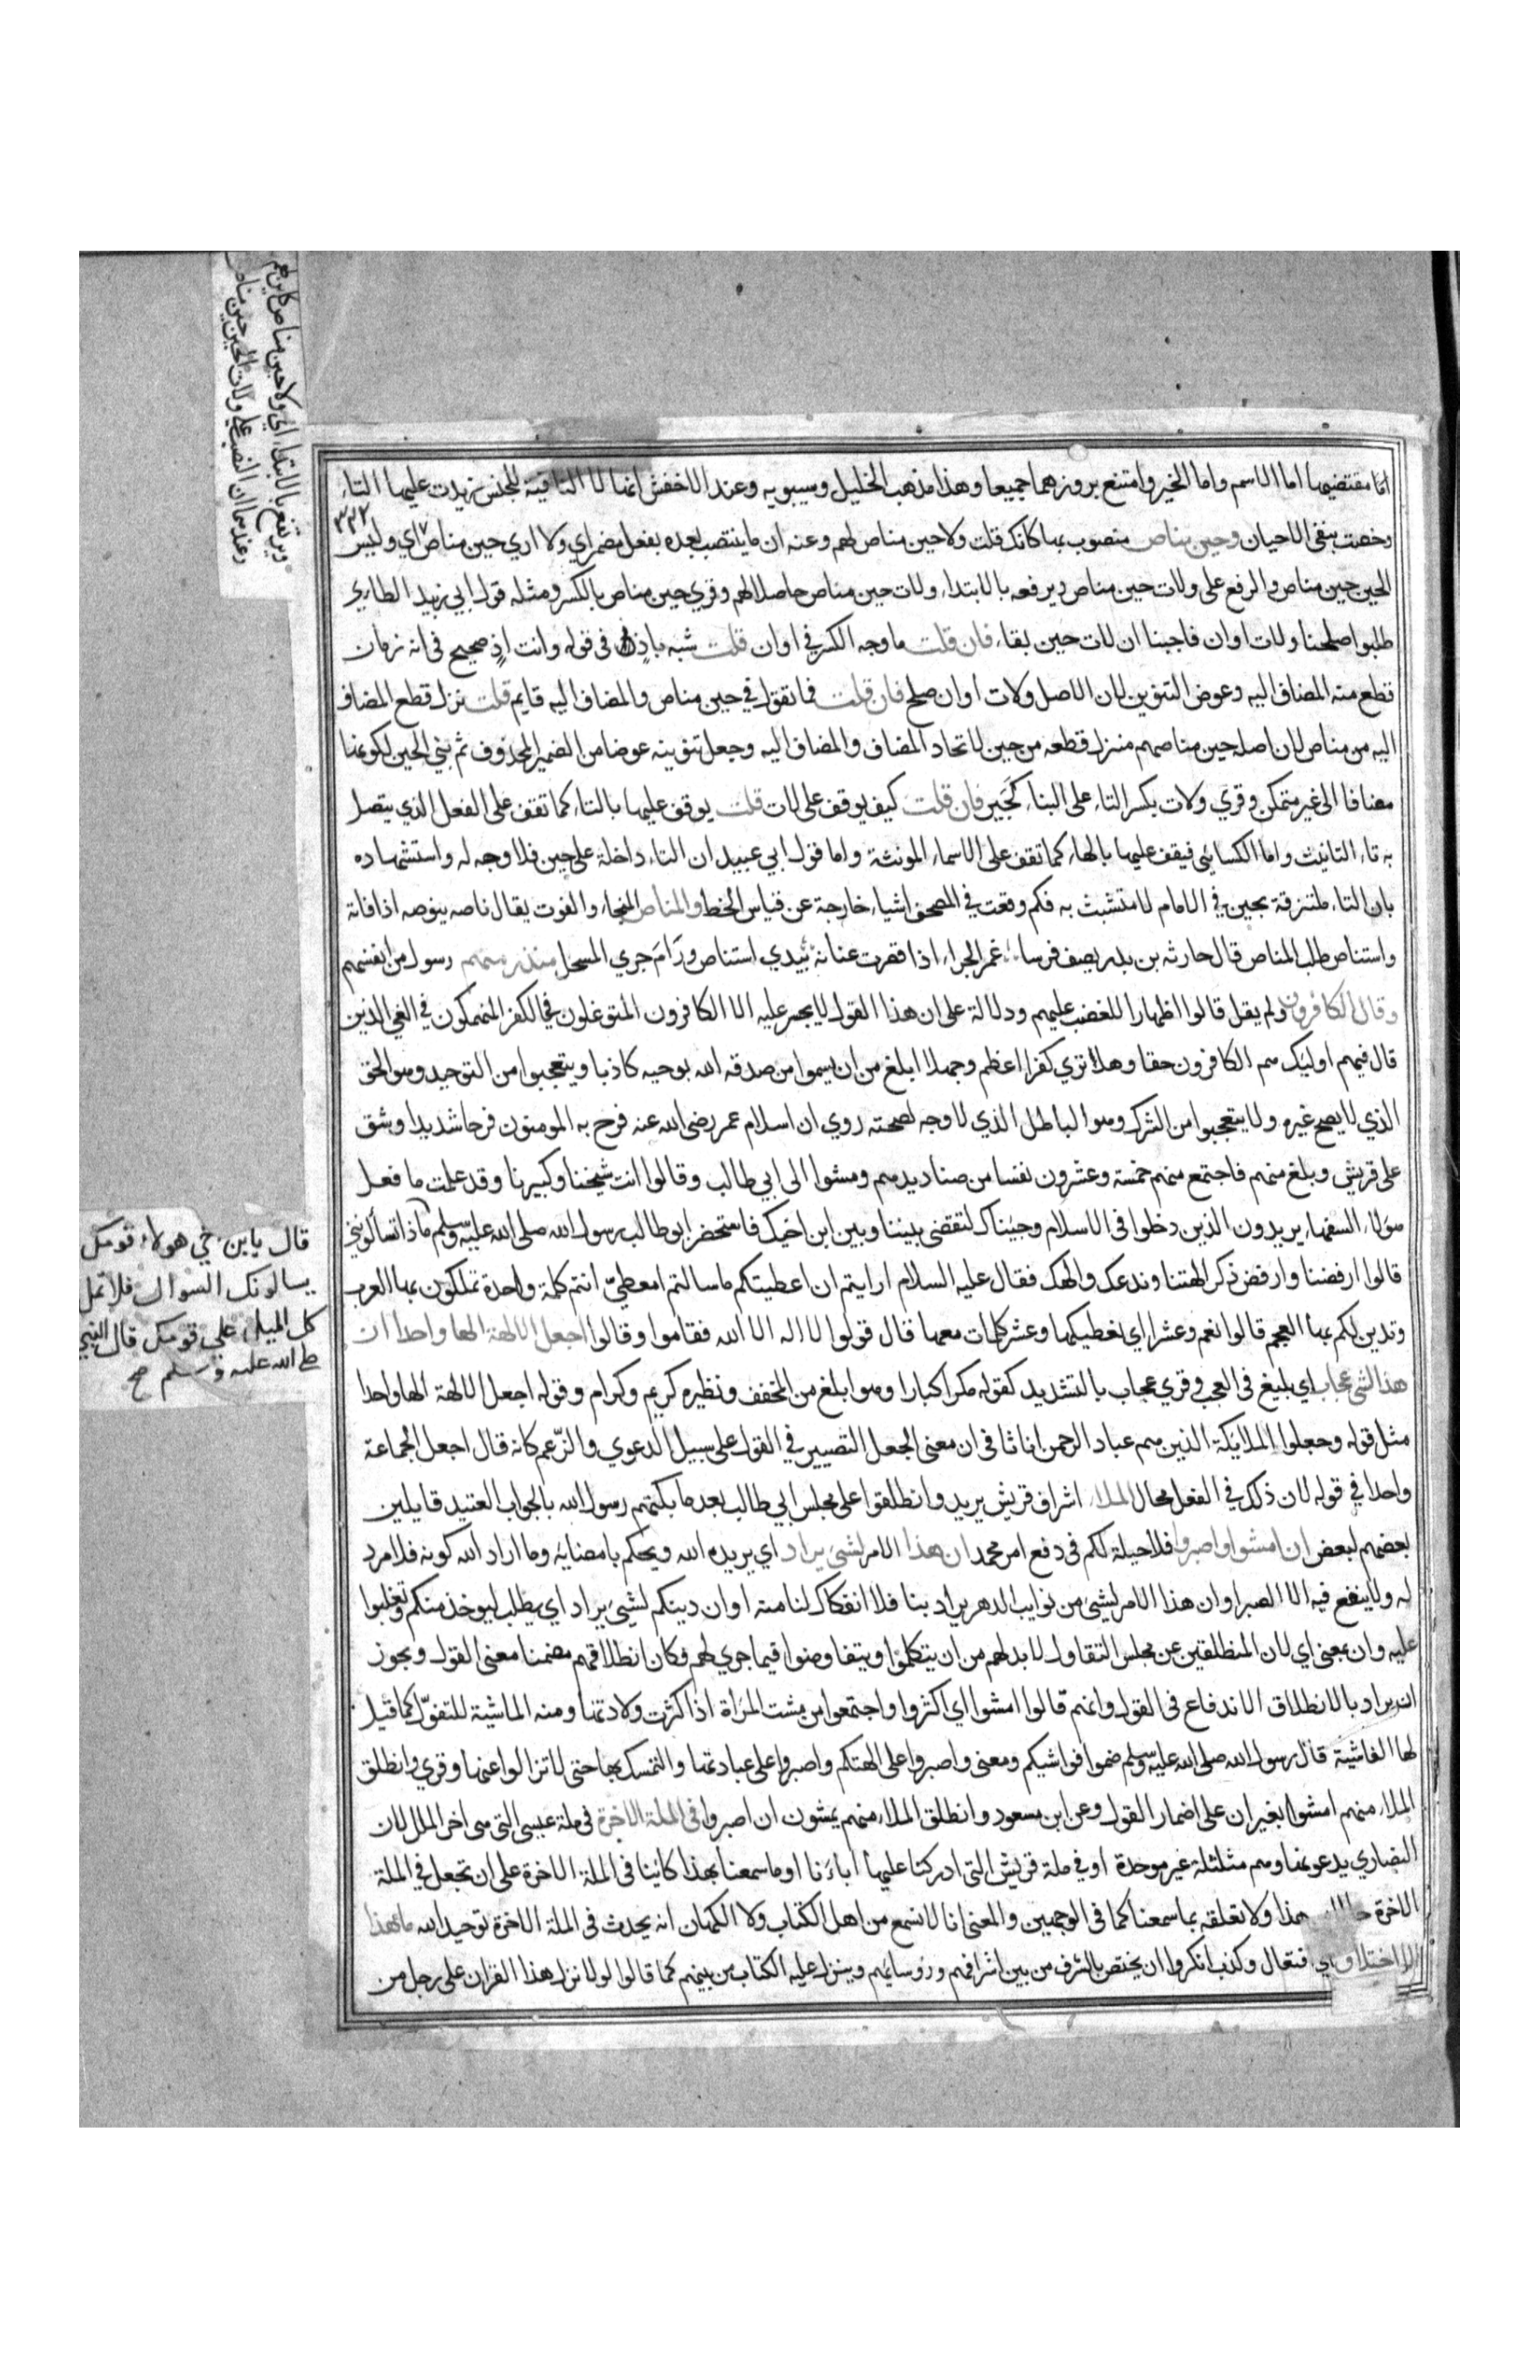 اما مقتضيها اما الاسم واما الخبر وامتنع بروزهما جميعا وهذا مذهب الخليل وسيبويه وعند الاخفش انها لا النافية للجنس زيدت عليها التاء
وخصت بنفى الاحيان وحين مناص منصوب بها كانك قلت ولا حين مناص لهم وعنه ان ما ينتصب بعده بفعل مضمر اي ولا اري حين مناص اي وليس
٣٢٢
الحين حين مناص والرفع على ولات حين مناص ويرفعه بالابتداء ولات حين مناص حاصلا لهم وقري حين مناص بالكسر ومثله قول ابي زبيد الطاري
طلبوا صلحنا ولات اوان فاجبنا ان لات حين بقاء فان قلت ما وجه الكسر في اوان قلت شبه باذ في قوله وانت اذٍ صحيح فى انه زمان
قطع منه المضاف اليه وعوض التنوين لان الاصل ولات اوان صلح فان قلت فما تقول في حين مناص والمضاف اليه قايم قلت نزل قطع المضاف
اليه من مناص لان اصله حين مناصهم منزلة قطعه من حين لاتحاد المضاف والمضاف اليه وجعل تنوينه عوضا من الضمير المحذوف ثم بني الحين لكونه
مضافا الى غير متمكن وقري ولات بكسر التاء على البناء كجَيرِ فان قلت كيف يوقف على لات قلت يوقف عليها بالتاء كما تقف على الفعل الذي يتصل
به تاء التانيث واما الكسائي فيقف عليها بالهاء كما تقف على الاسماء المونثة واما قول ابي عبيد ان التاء داخلة على حين فلا وجه له واستشهاده
بان التاء ملتزقة بحين في الامام لا متشبث به فكم وقعت في المصحف اشياء خارجة عن قياس الخط والمناص المنجاء والفوت يقال ناصه ينوصه اذا فاته
واستناص طلب المناص قال حارثه بن بدر يصف فرسا غمر الجراء اذا قصرت عنانه بيدي استناص ورَامَ جري المسحل منذر منهم رسول من انفسهم
وقال الكافرون ولم يقل قالوا اظهارا للغضب عليهم ودلالة على ان هذا القول لا يجسر عليه الا الكافرون المتوغلون في الكفر المنهمكون في الغي الذين
قال فيهم اوليك هم الكافرون حقا وهل تري كفرا اعظم وجهلا ابلغ من ان يسموا من صدقه الله بوحيه كاذبا ويتعجبوا من التوحيد وهو الحق
الذي لا يصح غيره ولا يتعجبوا من الشرك وهو الباطل الذي لا وجه لصحته روي ان اسلام عمر رضى الله عنه فرح به المومنون فرحا شديدا وشق
على قريش وبلغ منهم فاجتمع منهم خمسة وعشرون نفسا من صناديدهم ومشوا الى ابي طالب وقالوا انت شيخنا وكبيرنا وقد علمت ما فعل
هولاء السفهاء يريدون الذين دخلوا فى الاسلام وجيناك لتقضى بيننا وبين ابن اخيك فاستحضر ابو طالب رسول الله صلى الله عليه وسلم ماذا تسالونني
قالوا ارفضنا وارفض ذكر الهتنا وندعك والهك فقال عليه السلام ارايتم ان اعطيتكم ما سالتم امعطيّ انتم كلمة واحدة تملكون بها العرب
وتدين لكم بها العجم قالوا نعم وعشرا اي نعطيكها وعشر كلمات معها قال قولوا لا اله الا الله فقاموا وقالوا اجعل الالهة الها واحدا ان
هذا لشى عجاب اي بليغ فى العجب وقري عجاب بالتشديد كقوله مكرا كبارا وهو ابلغ من المخفف ونظيره كريم وكرام وقوله اجعل الالهة الها واحدا
مثل قوله وجعلوا الملايكة الذين هم عباد الرحمن اناثا فى ان معنى الجعل التصيير في القول على سبيل الدعوي والزّعم كانه قال اجعل الجماعة
واحدا في قوله لان ذلك في الفعل محال الملا اشراف قريش يريد وانطلقوا على مجلس ابي طالب بعد ما بكتهم رسول الله بالجواب العتيد قايلين
بعضهم لبعض ان امشوا واصبروا فلا حيلة لكم فى دفع امر محمد ان هذا الامر لشئ يراد اي يريده الله ويحكم بامضايه وما اراد الله كونه فلا مرد
له ولا ينفع فيه الا الصبر او ان هذا الامر لشئ من نوايب الدهر يراد بنا فلا انفكاك لنا منه او ان دينكم لشئ يراد اي يطلب ليوخذ منكم وتغلبوا
عليه وان بمعنى اي لان المنطلقين عن مجلس التقاول لا بد لهم من ان يتكلموا ويتفاوضوا فيما جري لهم فكان انطلاقهم مضمنا معنى القول ويجوز
ان يراد بالانطلاق الاندفاع فى القول وانهم قالوا امشوا اي اكثروا واجتمعوا من مشت المراة اذا كثرت ولادتها ومنه الماشية للتفوّل كما قيل
لها الفاشية قال رسول الله صلى الله عليه وسلم ضموا فواشيكم ومعنى واصبروا على الهتكم واصبروا على عبادتها والتمسك بها حتى لا تزالوا عنها وقري وانطلق
الملاء منهم امشوا بغير ان على اضمار القول وعن ابن مسعود وانطلق الملاء منهم يمشون ان اصبروا فى الملة الاخرة فى ملة عيسى التى هى اخر الملل لان
النصاري يدعونها وهم مثلثلة غير موحدة او في ملة قريش التى ادركنا عليها اباءنا او ما سمعنا بهذا كاينا فى الملة الاخرة على ان تجعل في الملة
الاخرة هذا ولا تعلقه بما سمعنا كما فى الوجهين والمعنى انا لا نسمع من اهل الكتاب ولا الكهان انه يحدث فى الملة الاخرة توحيد الله ما هذا
الا اختلاق اي افتعال وكذب انكروا ان يختص بالشرف من بين اشرافهم وروسايهم وينزل عليه الكتاب من بينهم كما قالوا لولا نزل هذا القران على رجل من
ويرتفع بالابتداء اي ولا حين مناص كاين لهم
وعندهما ان النصب على ولات الحين حين مناص
قال يابن خي هولاء قومك
يسالونك السوال فلا تمل
كل الميل على قومك قال النبي
صلى الله عليه وسلم صح